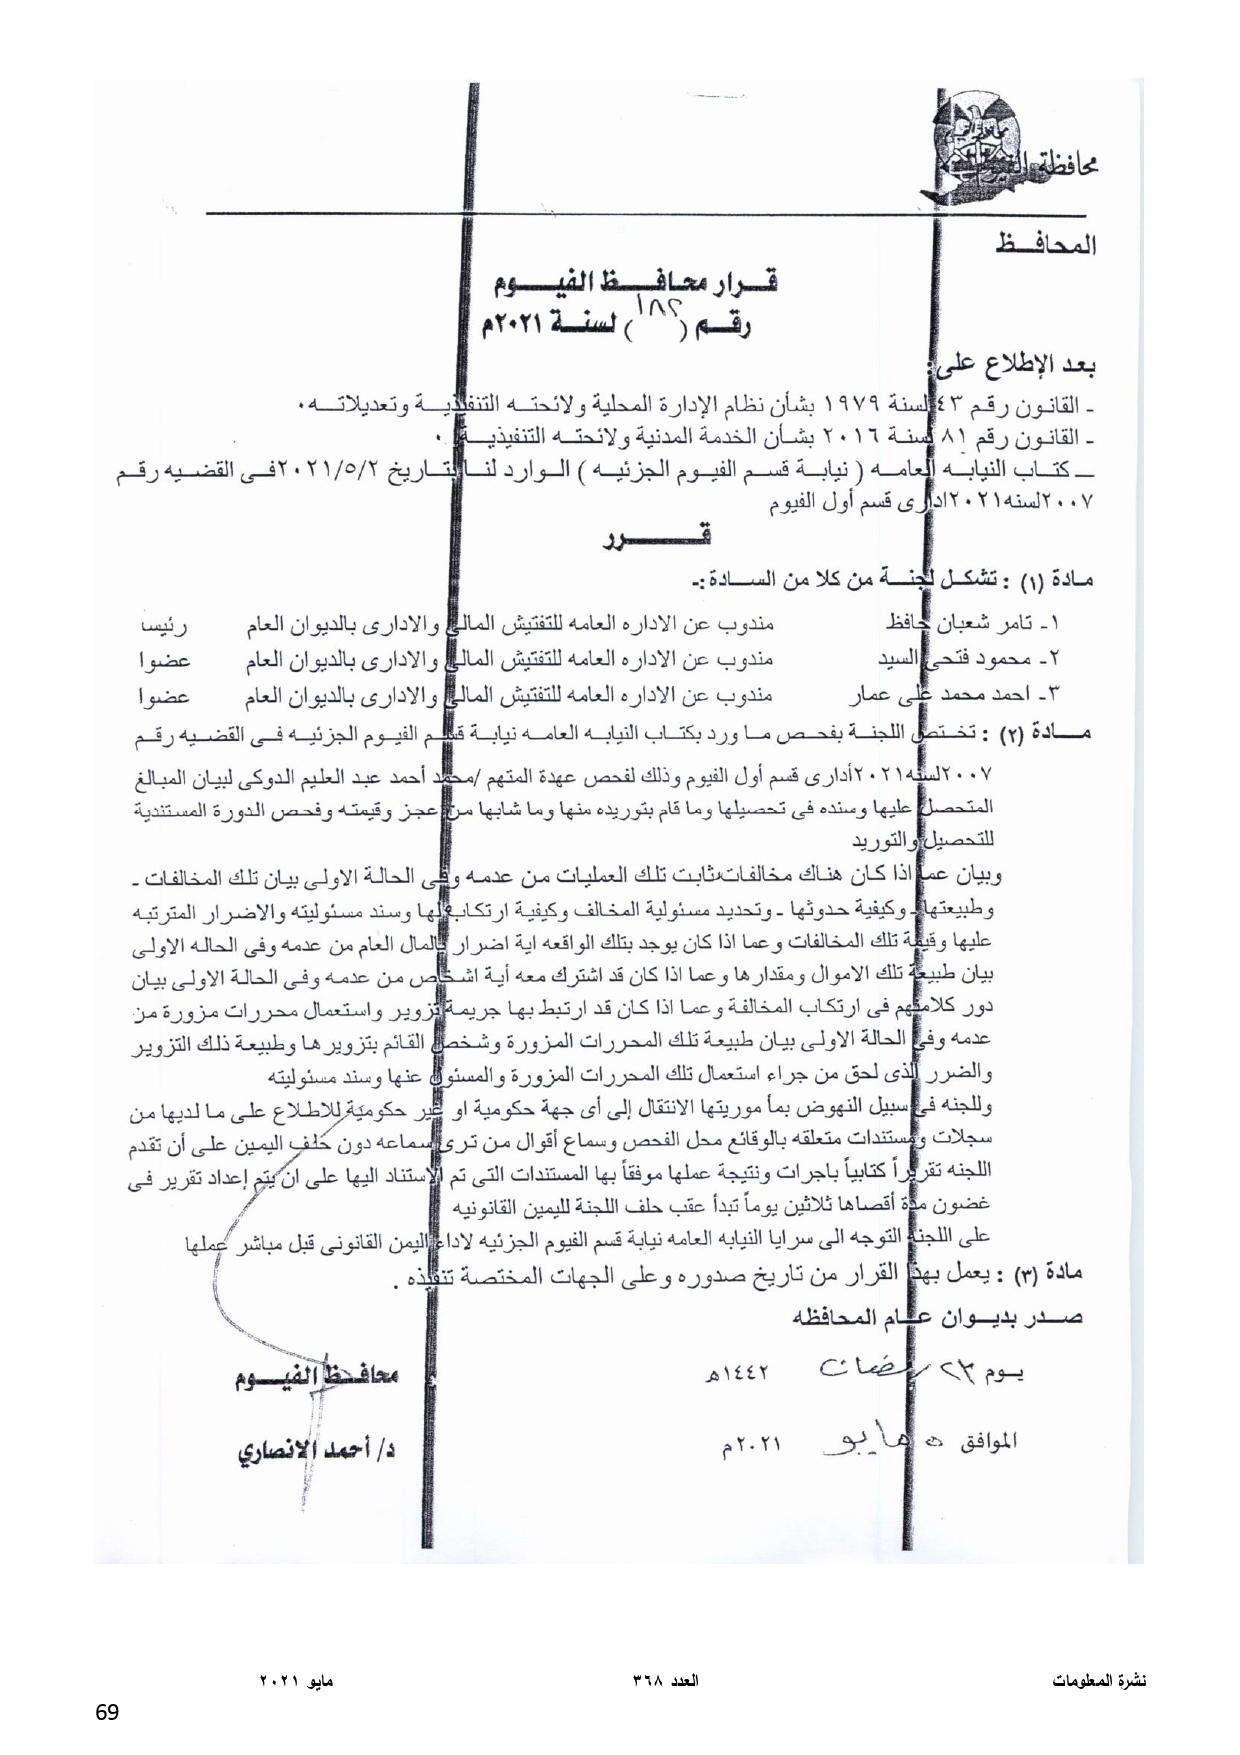 محافظة الفيوم
المحافـظ
قـرار محافـظ الفيـوم
رقـم (١٨٢) لسنـة ٢٠٢١م
بعد الإطلاع على:
ـ القانون رقم ٤٣ لسنة ١٩٧٩ بشأن نظام الإدارة المحلية ولائحته التنفيذية وتعديلاته٠
ـ القانون رقم ٨١ لسنة ٢٠١٦ بشأن الخدمة المدنية ولائحته التنفيذيـة ٠
ــ كتاب النيابه العامه ( نيابة قسم الفيوم الجزئيه ) الوارد لنا بتاريخ ٢٠٢١/٥/٢ فى القضيه رقم
٢٠٠٧لسنه٢٠٢١ادارى قسم أول الفيوم
قـــرر
مادة (١) : تشكل لجنة من كلا من السادة :ـ
١ـ تامر شعبان حافظ مندوب عن الاداره العامه للتفتيش المالى والادارى بالديوان العام رئيسا
٢ـ محمود فتحى السيد مندوب عن الاداره العامه للتفتيش المالى والادارى بالديوان العام عضوا
٣ـ احمد محمد على عمار مندوب عن الاداره العامه للتفتيش المالى والادارى بالديوان العام عضوا
مـادة (٢) : تختص اللجنة بفحص ما ورد بكتاب النيابه العامه نيابة قسم الفيوم الجزئيه فى القضيه رقم
٢٠٠٧لسنه٢٠٢١أدارى قسم أول الفيوم وذلك لفحص عهدة المتهم /محمد أحمد عبد العليم الدوكى لبيان المبالغ
المتحصل عليها وسنده فى تحصيلها وما قام بتوريده منها وما شابها من عجز وقيمته وفحص الدورة المستندية
للتحصيل والتوريد
وبيان عما اذا كان هناك مخالفات ثابت تلك العمليات من عدمه وفى الحالة الاولى بيان تلك المخالفات ـ
وطبيعتها ـ وكيفية حدوثها ـ وتحديد مسئولية المخالف وكيفية ارتكاب لها وسند مسئوليته والاضرار المترتبه
عليها وقيمة تلك المخالفات وعما اذا كان يوجد بتلك الواقعه اية اضرار بالمال العام من عدمه وفى الحاله الاولى
بيان طبيعة تلك الاموال ومقدارها وعما اذا كان قد اشترك معه أية اشخاص من عدمه وفى الحالة الاولى بيان
دور كلامنهم فى ارتكاب المخالفة وعما اذا كان قد ارتبط بها جريمة تزوير واستعمال محررات مزورة من
عدمه وفى الحالة الاولى بيان طبيعة تلك المحررات المزورة وشخص القائم بتزويرها وطبيعة ذلك التزوير
والضرر الذى لحق من جراء استعمال تلك المحررات المزورة والمسئول عنها وسند مسئوليته
وللجنه فى سبيل النهوض بمأموريتها الانتقال إلى أى جهة حكومية او غير حكومية للاطلاع على ما لديها من
سجلات ومستندات متعلقه بالوقائع محل الفحص وسماع أقوال من ترى سماعه دون حلف اليمين على أن تقدم
اللجنه تقريراً كتابياً باجرات ونتيجة عملها موفقاً بها المستندات التى تم الاستناد اليها على ان يتم إعداد تقرير فى
غضون مدة أقصاها ثلاثين يوماً تبدأ عقب حلف اللجنة لليمين القانونيه
على اللجنه التوجه الى سرايا النيابه العامه نيابة قسم الفيوم الجزئيه لاداء اليمن القانونى قبل مباشر عملها
مادة (٣) : يعمل بهذا القرار من تاريخ صدوره وعلى الجهات المختصة تنفيذه .
صدر بديوان عام المحافظه
يوم ٢٣ رمضان ١٤٤٢هـ
محافـظ الفيـوم
الموافق ٥ مايو ٢٠٢١م
د/ أحمد الانصاري
نشرة المعلومات العدد ٣٦٨ مايو ٢٠٢١
69